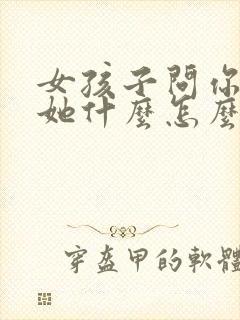 女孩子問你
她什麼怎麼
穿盔甲的軟體